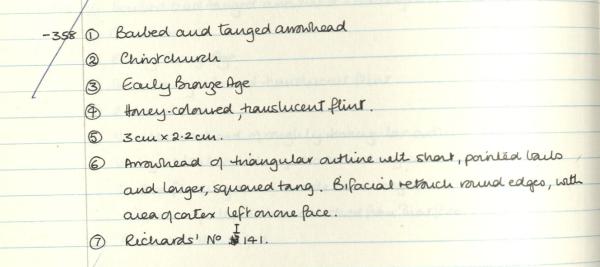 -358 ① Barbed and tanged arrowhead
② Christchurch
③ Early Bronze Age
④ Honey-coloured, translucent flint.
⑤ 3cm x 2.2cm.
⑥ Arrowhead of triangular outline with short, pointed barbs
and longer, squared tang. Bifacial retouch round edges, with
area of cortex left on one face.
⑦ Richards' No I 141.